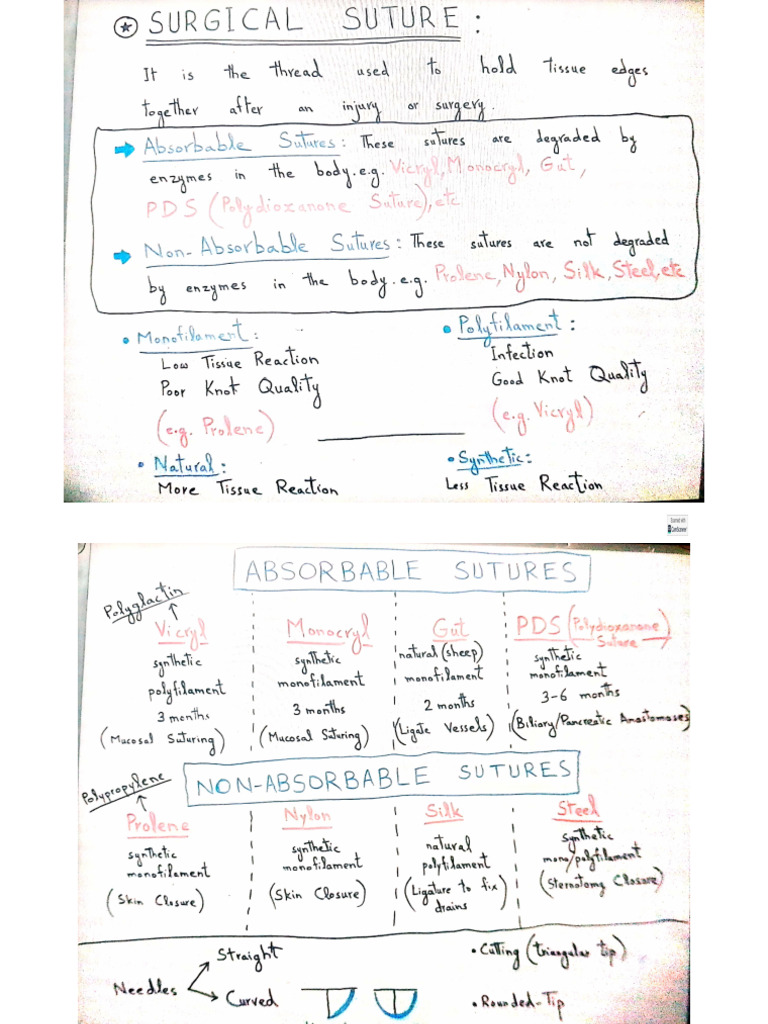 SURGICAL SUTURE:
It is the thread used to hold tissue edges
together after an injury or surgery.
Absorbable Sutures: These sutures are degraded by
enzymes in the body. e.g. Vicryl, Monocryl, Gut,
PDS (Polydioxanone Suture), etc
Non-Absorbable Sutures: These sutures are not degraded
by enzymes in the body. e.g. Prolene, Nylon, Silk, Steel, etc
• Monofilament:
Low Tissue Reaction
Poor Knot Quality
(e.g. Prolene)
• Polyfilament:
Infection
Good Knot Quality
(e.g. Vicryl)
• Natural:
More Tissue Reaction
• Synthetic:
Less Tissue Reaction
Scanned with
CamScanner
ABSORBABLE SUTURES
Polyglactin
Vicryl
synthetic
polyfilament
3 months
(Mucosal Suturing)
Monocryl
synthetic
monofilament
3 months
(Mucosal Suturing)
Gut
natural (sheep)
monofilament
2 months
(Ligate Vessels)
PDS (Polydioxanone
Suture)
synthetic
monofilament
3-6 months
(Biliary/Pancreatic Anastomoses)
NON-ABSORBABLE SUTURES
Polypropylene
Prolene
synthetic
monofilament
(Skin Closure)
Nylon
synthetic
monofilament
(Skin Closure)
Silk
natural
polyfilament
(Ligature to fix
drains)
Steel
synthetic
mono/polyfilament
(Sternotomy Closure)
Needles
Straight
Curved
• Cutting (triangular tip)
• Rounded-Tip